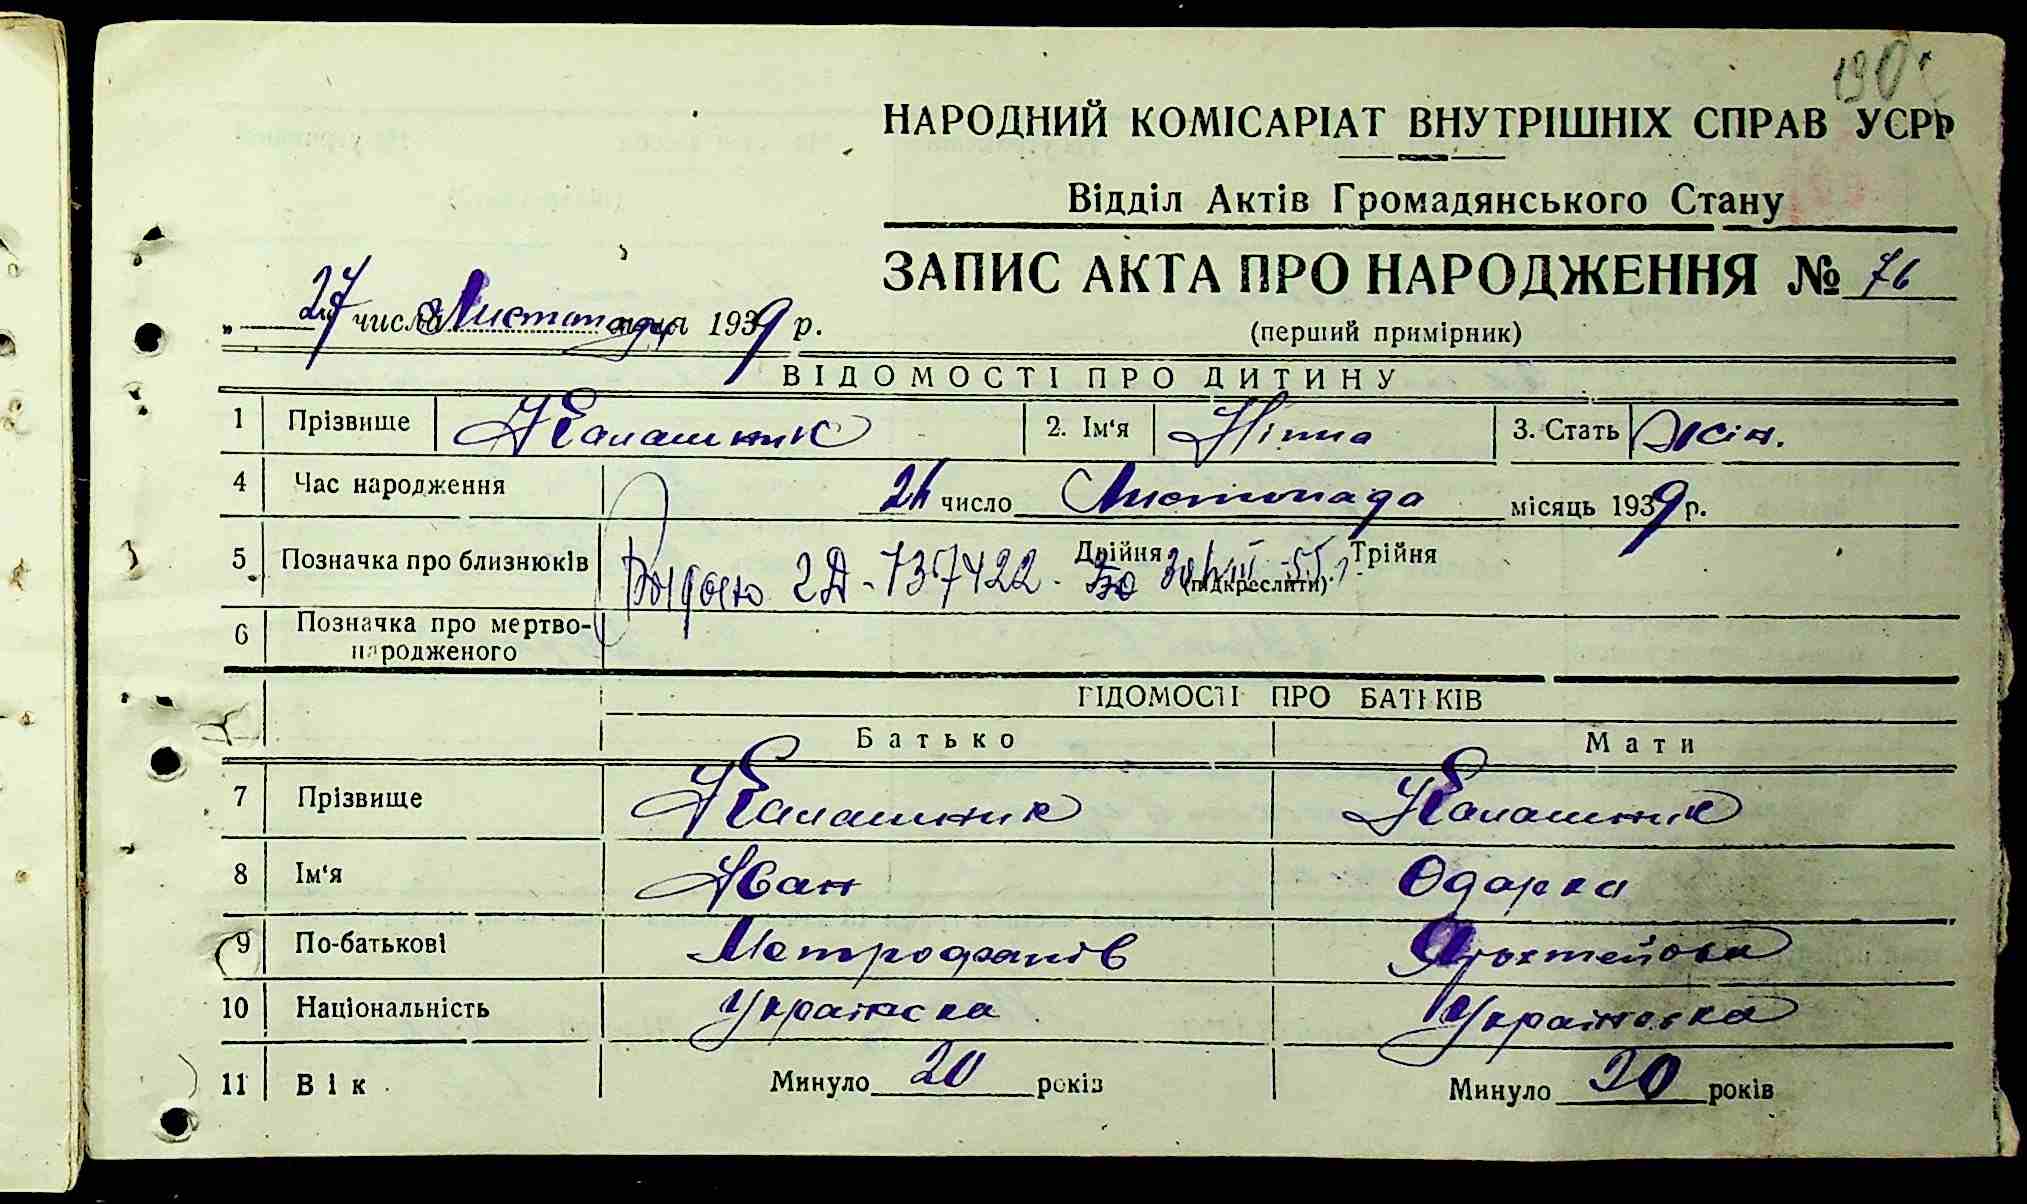 190
НАРОДНИЙ КОМІСАРІАТ ВНУТРІШНІХ СПРАВ УСРР
Відділ Актів Громадянського Стану
ЗАПИС АКТА ПРО НАРОДЖЕННЯ № 76
„27 числа Листопада дня 1939 р.
(перший примірник)
ВІДОМОСТІ ПРО ДИТИНУ
1 Прізвище Калашник 2. Ім'я Нінна 3. Стать Жін.
4 Час народження число Листопада місяць 1939 р.
5 Позначка про близнюків Двійня Трійня
(підкреслити)
2Д-737422. 55
6 Позначка про мертво-
народженого
ВІДОМОСТІ ПРО БАТЬКІВ
Батько Мати
7 Прізвище Калашник Калашник
8 Ім'я Іван Одарка
9 По-батькові Метрофанів
10 Національність Українска Українська
11 Вік Минуло 20 років Минуло 20 років